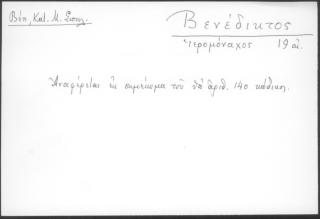 Βέη, Κατ. Μ. Σισαν.
Βενέδικτος
Ἱερομόναχος 19 αἰ.
Ἀναφέρεται ἐκ σημειώμα τοῦ ὑπ' ἀριθ. 140 κώδικος.